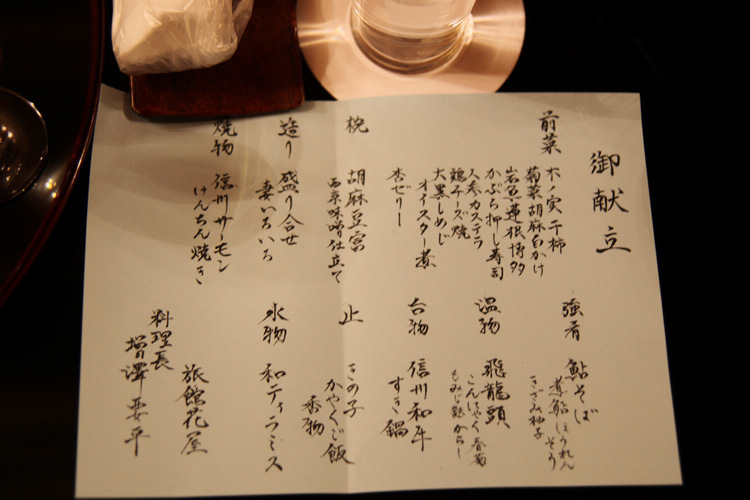 御献立
前菜
木ノ実干柿
菊菜胡麻白かけ
岩魚蓮根博多
かぶら押し寿司
人参カステラ
鶏チーズ焼
大黒しめじ
オイスター煮
杏ゼリー
椀
胡麻豆富
西京味噌仕立て
造り
盛り合せ
妻いろいろ
焼物
信州サーモン
けんちん焼き
強肴
鮎そば
煮鮎 ほうれんそう
きざみ柚子
温物
飛龍頭
こんにゃく 春菊
もみじ麩 からし
台物
信州和牛
すき鍋
止
きの子
かやくご飯
香物
水物
和ティラミス
旅館花屋
料理長
増澤 平